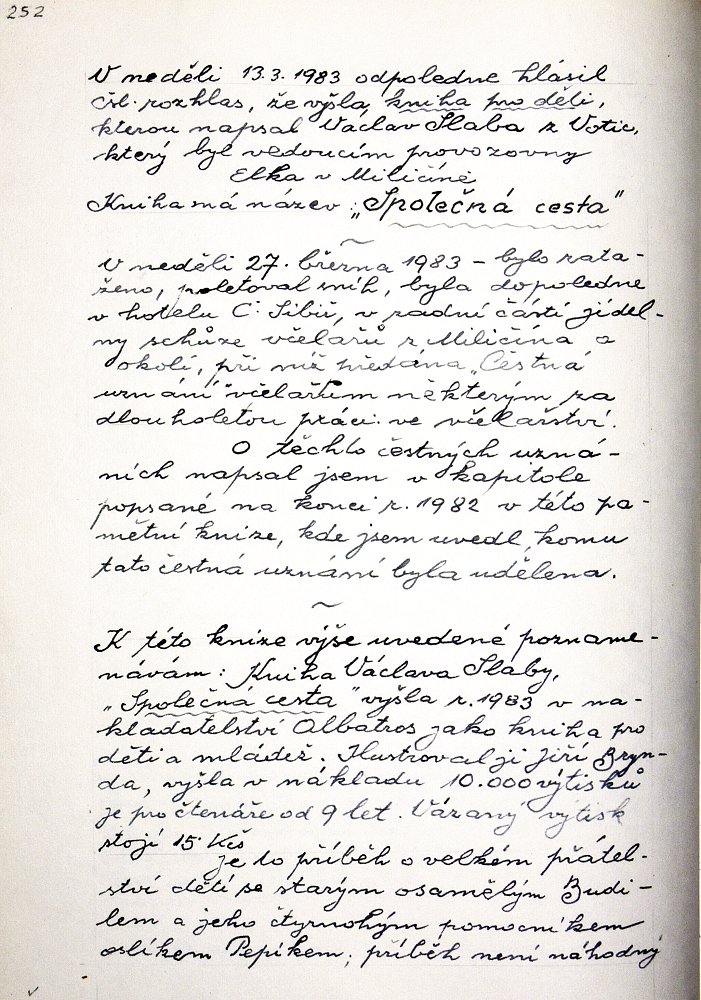 252
V neděli 13.3.1983 odpoledne hlásil
čsl. rozhlas, že vyšla kniha pro děti,
kterou napsal Václav Slaba z Votic,
který byl vedoucím provozovny
Elka v Miličíně
Kniha má název: „Společná cesta"
~
V neděli 27. března 1983 – bylo zata-
ženo, poletoval sníh, byla dopoledne
v hotelu Č. Sibiř, v zadní části jídel-
ny schůze včelařů z Miličína a
okolí, při níž předána „Čestná
uznání" včelařům některým za
dlouholetou práci ve včelařství.
O těchto čestných uzná-
ních napsal jsem v kapitole
popsané na konci r. 1982 v této pa-
mětní knize, kde jsem uvedl, komu
tato čestná uznání byla udělena.
~
K této knize výše uvedené pozname-
návám: Kniha Václava Slaby,
„Společná cesta" vyšla r. 1983 v na-
kladatelství Albatros jako kniha pro
děti a mládež. Ilustroval ji Jiří Bryn-
da, vyšla v nákladu 10.000 výtisků
je pro čtenáře od 9 let. Vázaný výtisk
stojí 15 Kčs
Je to příběh o velkém přátel-
ství dětí se starým osamělým Budi-
lem a jeho čtyrnohým pomocníkem
oslíkem Pepíkem; příběh není náhodný